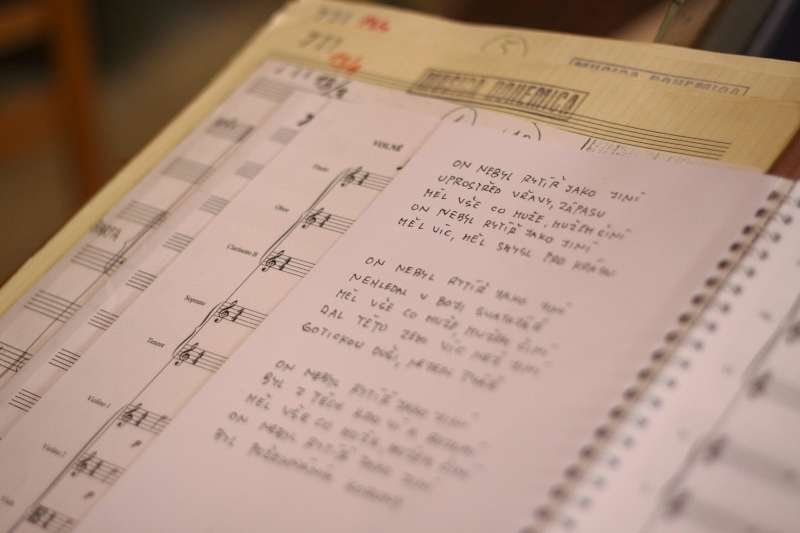 MUSICA BOHEMICA
MUSICA BOHEMICA
VOLNĚ
Flauto
Oboe
Clarinetto B
Soprano
Tenore
Violino 1
Violino 2
Viola
p
p
ON NEBYL RYTÍŘ JAKO JINÍ
UPROSTŘED VŘAVY, ZÁPASU
MĚL VŠE CO MUŽE, MUŽEM ČINÍ
ON NEBYL RYTÍŘ JAKO JINÍ
MĚL VÍC, MĚL SMYSL PRO KRÁSU
ON NEBYL RYTÍŘ JAKO JINÍ
NEHLEDAL V BOJI
MĚL VŠE CO MUŽE MUŽEM ČINÍ
DAL TÉTO ZEMI VÍC NEŽ JINÍ
GOTICKOU DUŠI,
ON NEBYL RYTÍŘ JAKO JINÍ
BYL Z TĚCH
MĚL VŠE CO MUŽE, MUŽEM ČINÍ
ON NEBYL RYTÍŘ JAKO JINÍ
BYL